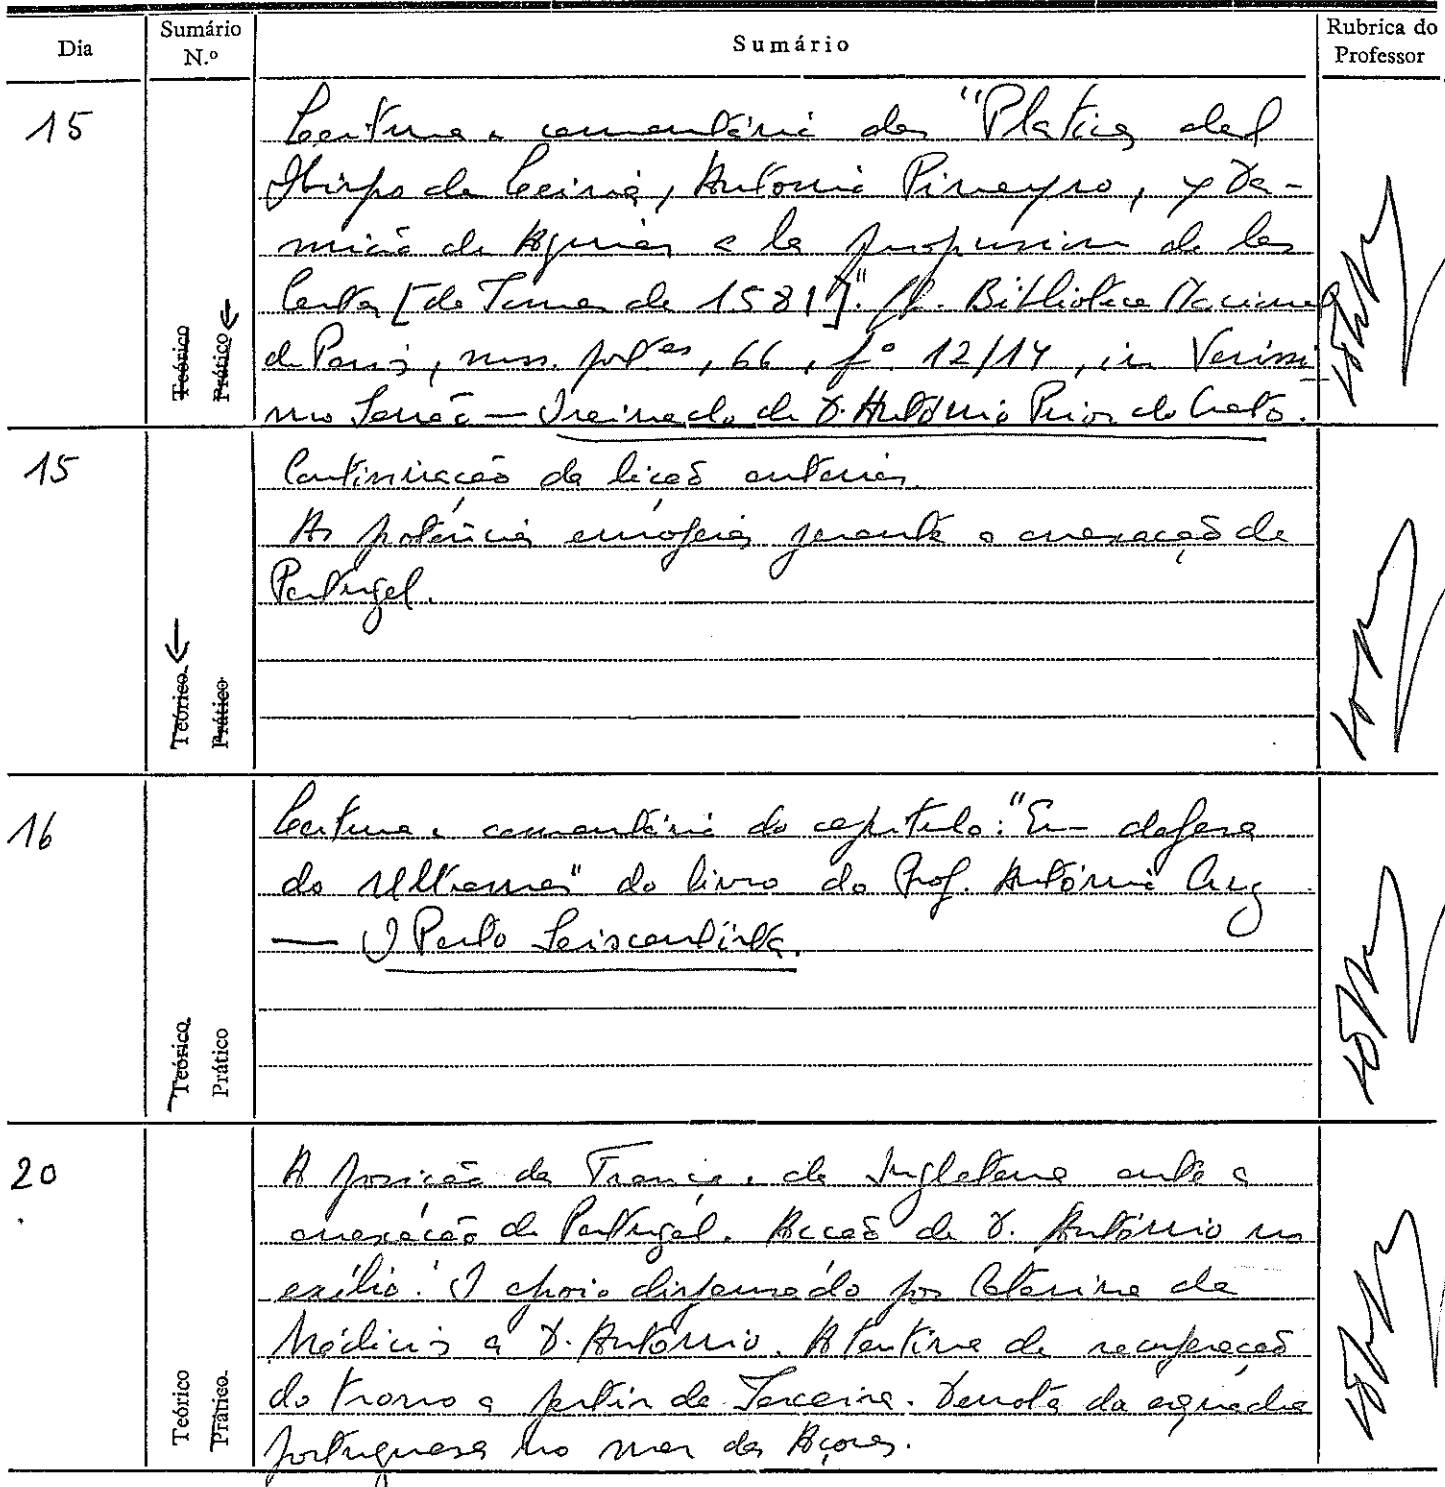 Dia
Sumário
N.º
Sumário
Rubrica do
Professor
15
Teórico
Prático
Leitura e comentário das "Platica del
Obispo de Leiria, António Pineyro, y Da-
mião de Aguiar a la proposicion de las
Cortes [de Tomar de 1581]". Biblioteca Nacional
de Paris, mss. port.es, 66, f.º 12/14, in Veríssi-
mo Serrão — O reinado de D. António Prior do Crato.
15
Teórico
Prático
Continuação da lição anterior.
As potências europeias perante a anexação de
Portugal.
16
Teórico
Prático
Leitura e comentário do capítulo: "Em defesa
do Ultramar" do livro do Prof. António Cruz
— O Porto Seiscentista.
20
Teórico
Prático
A posição da França e da Inglaterra ante a
anexação de Portugal. Acção de D. António no
exílio. O apoio dispensado por Catarina de
Médicis a D. António. A tentativa de recuperação
do trono a partir da Terceira. Derrota da esquadra
portuguesa no mar dos Açores.